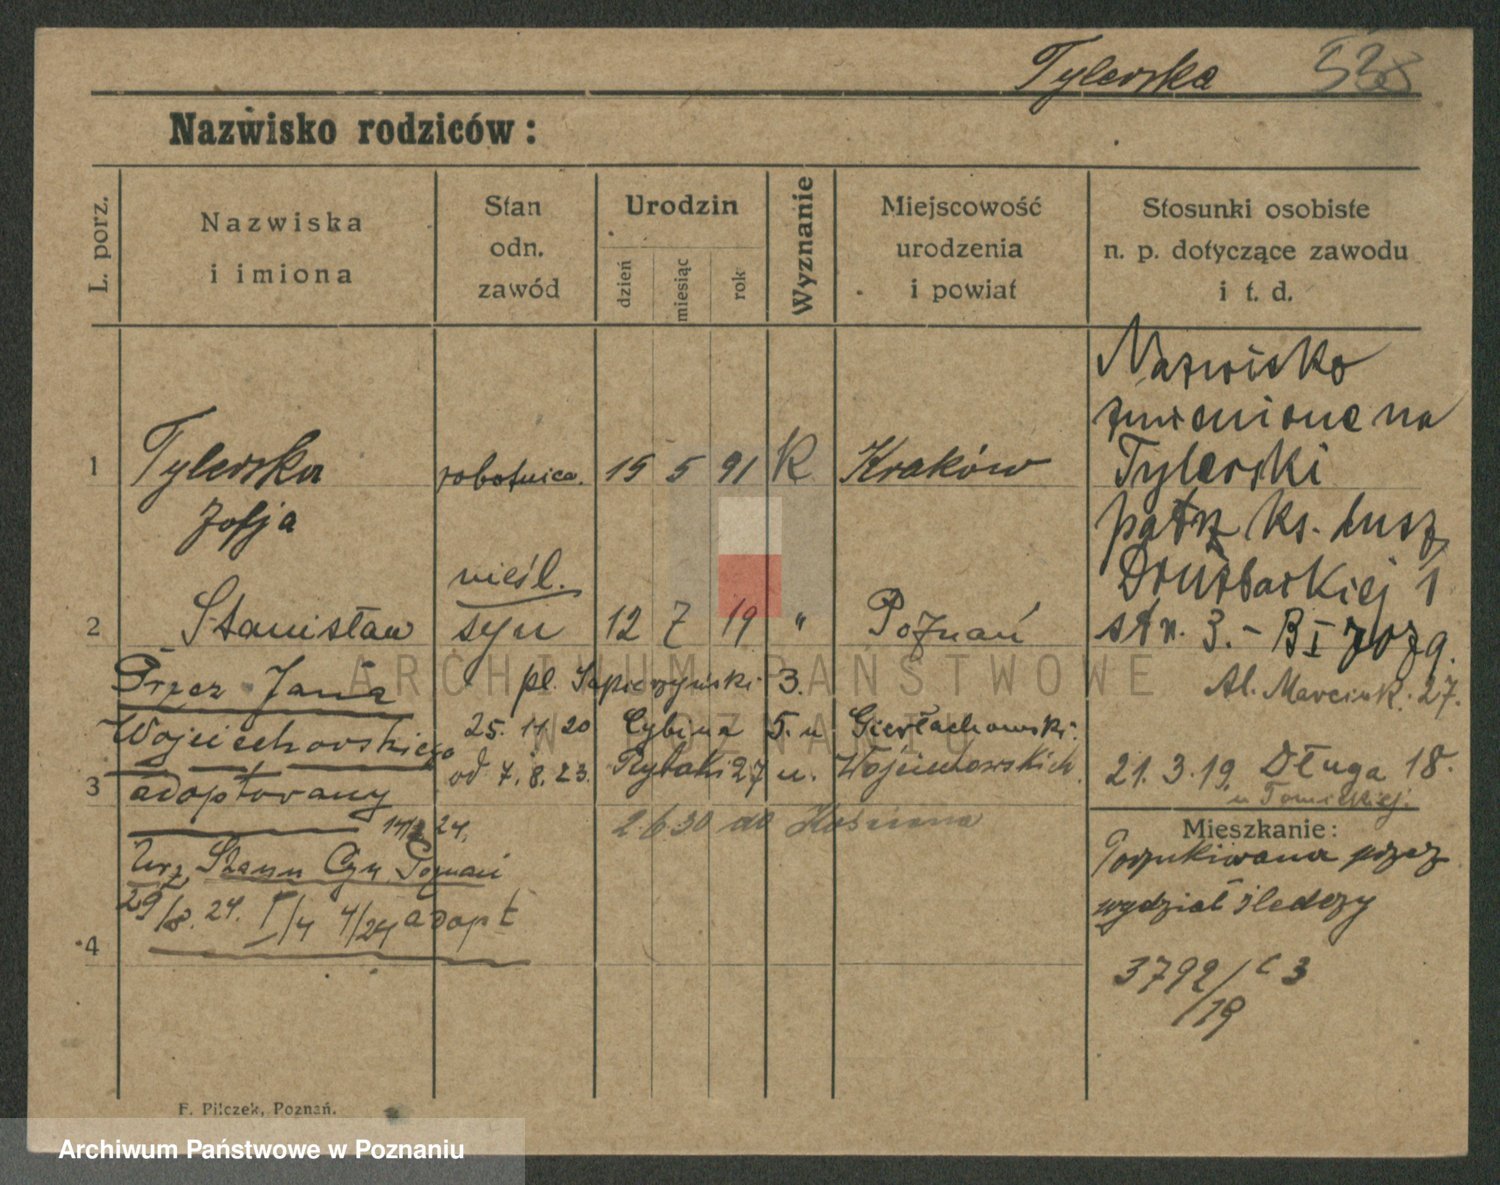 Tylerska 538
Nazwisko rodziców:
L. porz.
Nazwiska i imiona
Stan odn. zawód
Urodzin
dzień
miesiąc
rok
Wyznanie
Miejscowość urodzenia i powiat
Stosunki osobiste n. p. dotyczące zawodu i t. d.
1 Tylerska robotnica. 15 5 91 K Kraków
Zofja
nieśl.
2 Stanisław syn 12 7 19 " Poznań
Nazwisko
zmienione na
Tylerski
patrz ks. dusz
Drużbackiej 1
str. 3. - B I
Przez Jana pl. Sapieżyński 3.
Al. Marcink. 27.
Wojciechowskiego 25. 11. 20 Cybina 5. u
od 7. 8. 23. Rybaki 27 u. Wojciechowskich.
21. 3. 19. Długa 18.
u Tomickiej.
3 adoptowany
24. 2 6 30 do
Urz. Stanu Cyw. Poznań
29/8. 24. I/4 4/24 adopt
4
Mieszkanie:
Poszukiwana przez
wydział śledczy
3792/19 C 3
F. Pilczek, Poznań.
ARCHIWUM PAŃSTWOWE
W POZNANIU
Archiwum Państwowe w Poznaniu